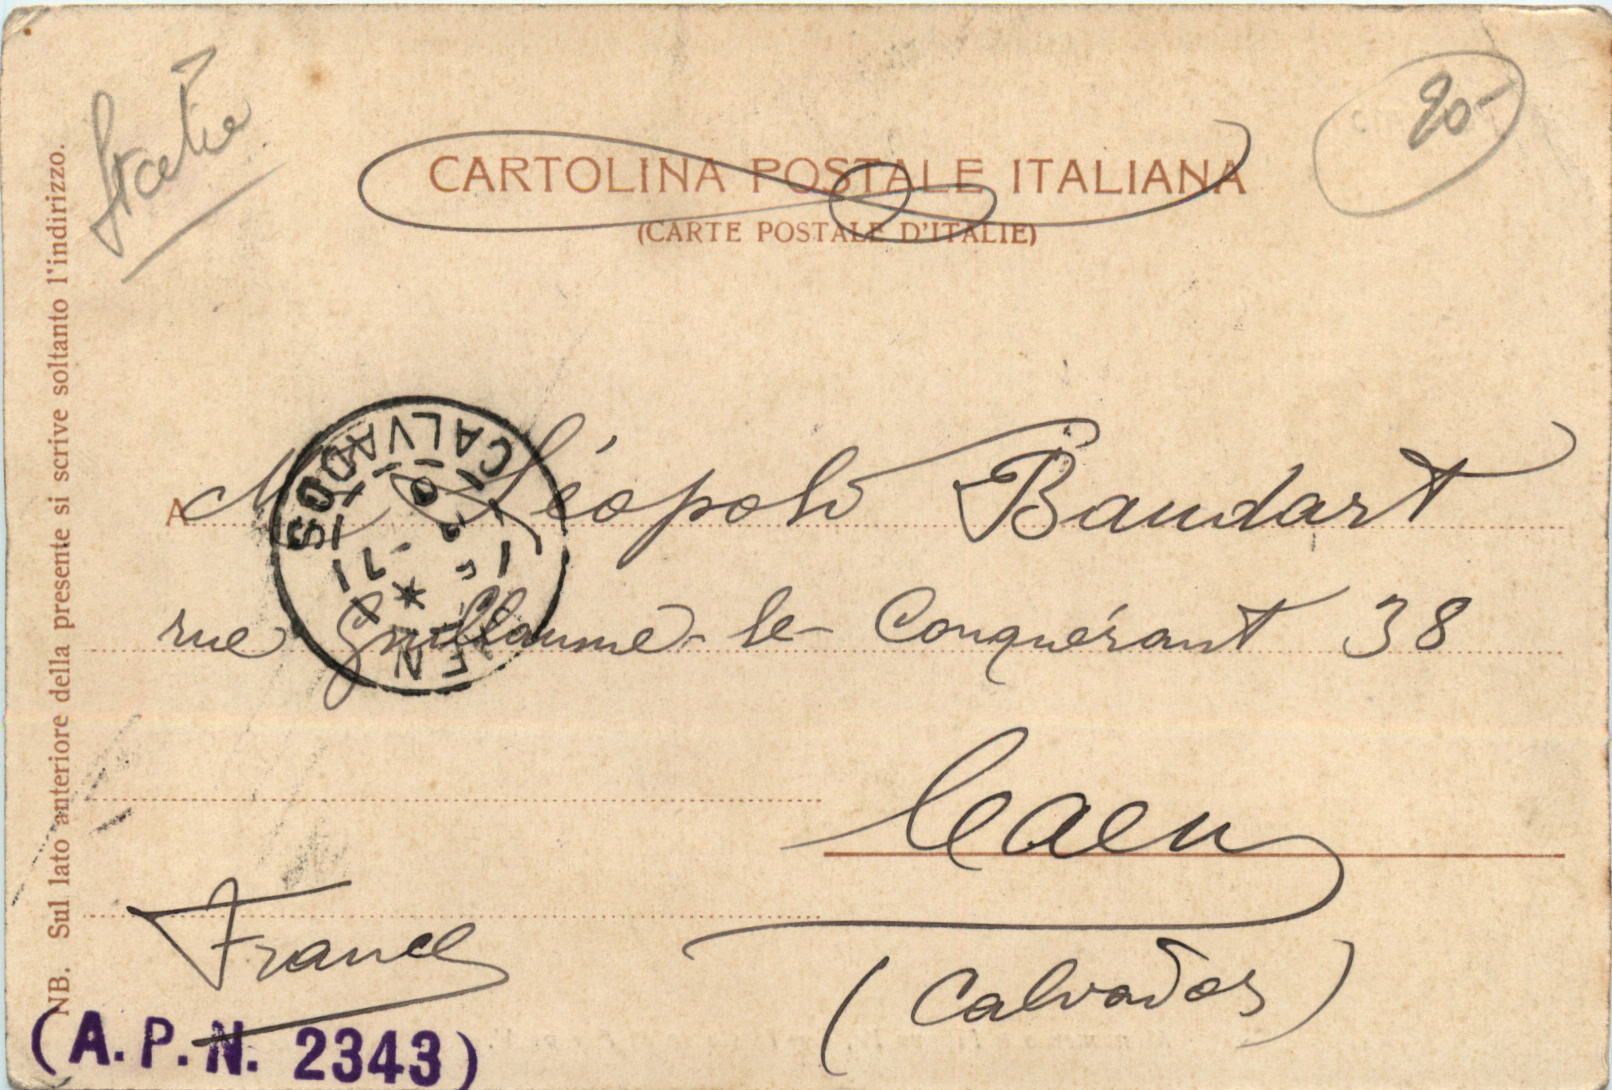 Italie
20-
CARTOLINA POSTALE ITALIANA
(CARTE POSTALE D'ITALIE)
NB. Sul lato anteriore della presente si scrive soltanto l'indirizzo.
CALVADOS
A Mr Léopold Baudart
rue Guillaume-le-Conquérant 38
Caen
France
(Calvados)
(A.P.N. 2343)